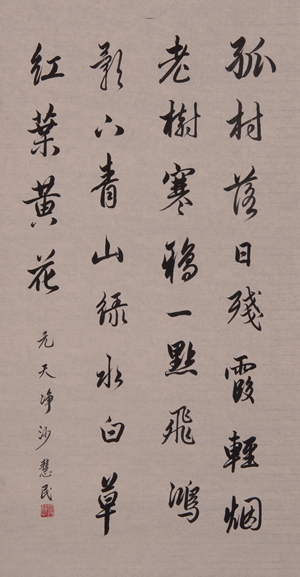 孤村落日殘霞輕烟
老樹寒鴉一點飛鴻
影下青山綠水白草
紅葉黃花
元天净沙慧民